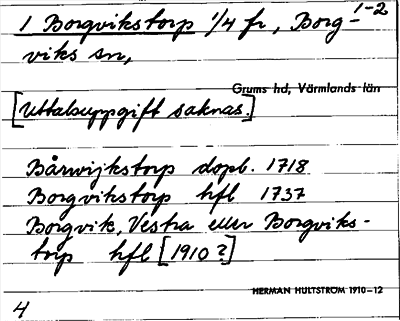 1-2
1 Borgvikstorp 1/4 fr, Borg-
viks sn,
Grums hd, Värmlands län
[Uttalsuppgift saknas.]
Bårwijkstorp dopb. 1718
Borgvikstorp hfl 1737
Borgvik, Vestra eller Borgviks-
torp hfl [1910?]
HERMAN HULTSTRÖM 1910-12
4